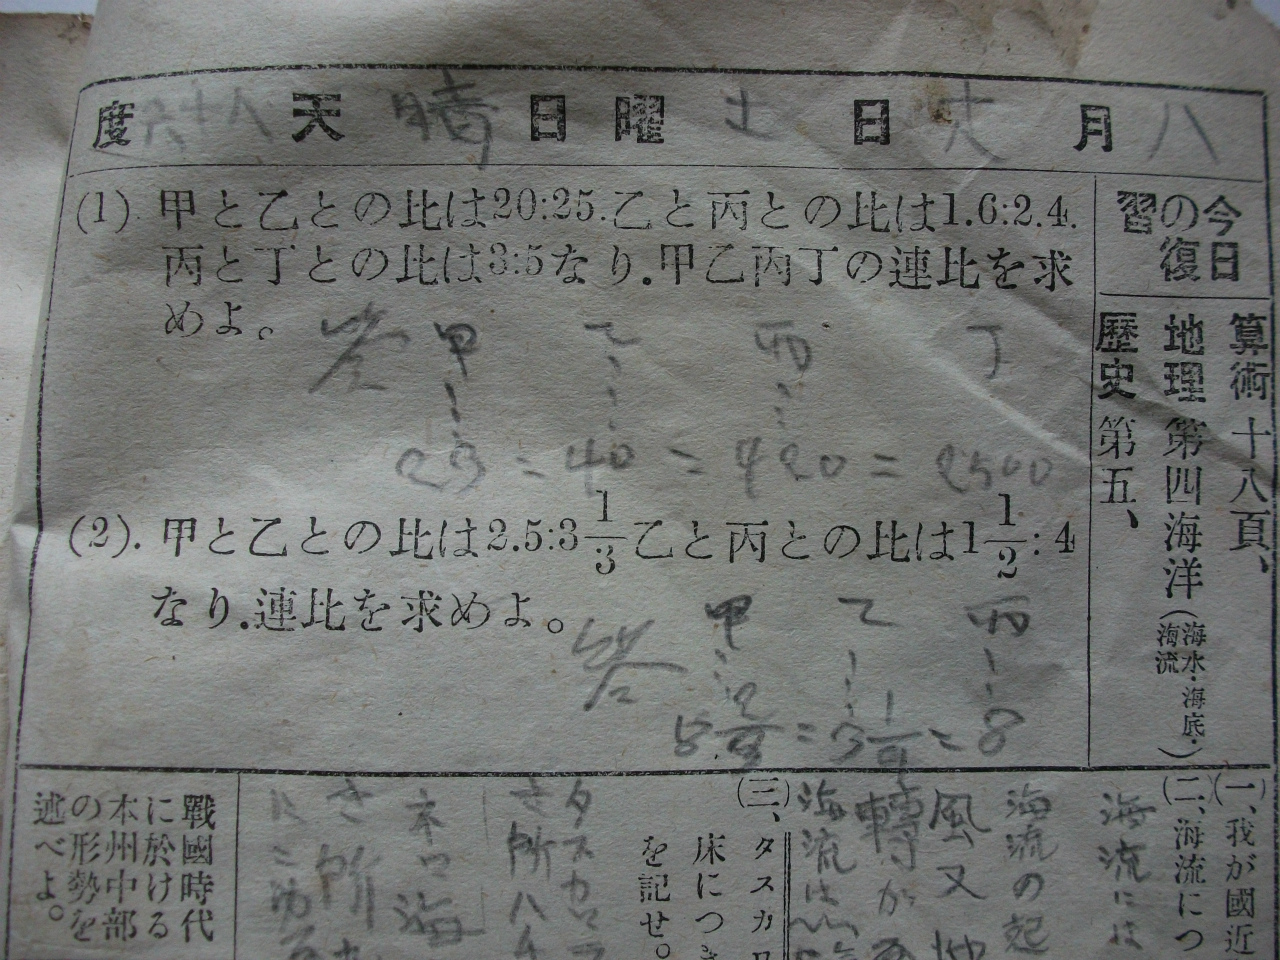 八月 日 土曜日 晴天 八十 度
今日の復習
算術 十八頁、
地理 第四海洋(海水・海底・海流)
歷史 第五、
(1) 甲と乙との比は20:25.乙と丙との比は1.6:2.4.
丙と丁との比は3:5なり.甲乙丙丁の連比を求
めよ。
答 甲 乙 丙 丁
23 = 40 = 420 = 2500
(2). 甲と乙との比は2.5:3 1/3 乙と丙との比は1 1/2 : 4
なり.連比を求めよ。
答 甲 乙 丙
= 3 = 8
(一、我が國近
(二、海流につ
海流には
海流の起
風又
轉が
海流は
(三)、タスカロ
床につき
を記せ。
タスカロラ
き所ハ
ネロ海
き所
戰國時代
に於ける
本州中部
の形勢を
述べよ。